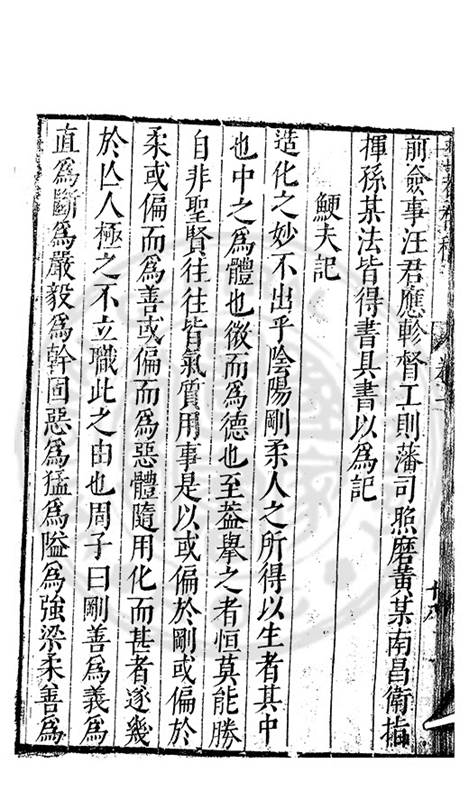 前僉事汪君應軫督工則藩司照磨黃某南昌衛指
揮孫某法皆得書具書以為記
鯁夫記
造化之妙不出乎陰陽剛柔人之所得以生者其中
也中之為體也微而為德也至葢舉之者恒莫能勝
自非聖賢往往皆氣質用事是以或偏於剛或偏於
柔或偏而為善或偏而為惡體隨用化而甚者遂幾
於亾人極之不立職此之由也周子曰剛善為義為
直為斷為嚴毅為幹固惡為猛為隘為強梁柔善為